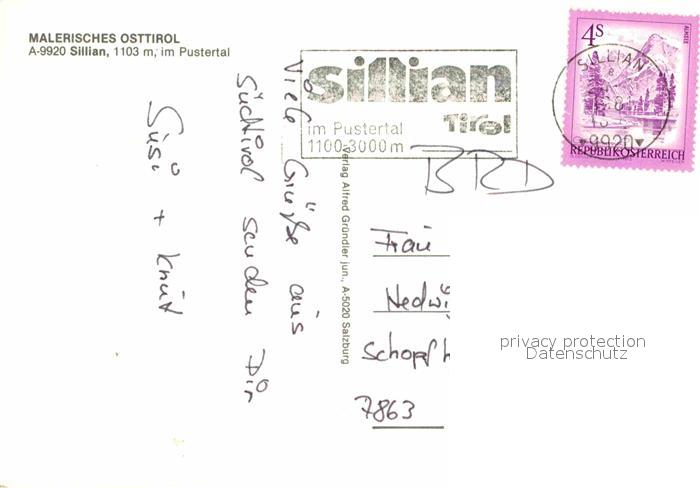 MALERISCHES OSTTIROL
A-9920 Sillian, 1103 m, im Pustertal
sillian
Tirol
im Pustertal
1100-3000m
4S
ALMSEE
REPUBLIK ÖSTERREICH
SILLIAN
9920
BRD
Viele Grüße aus
Südtirol senden Dir
Susi + Knut
Verlag Alfred Gründler jun., A-5020 Salzburg
Frau
Hedwi
Schopfh
7863
privacy protection
Datenschutz